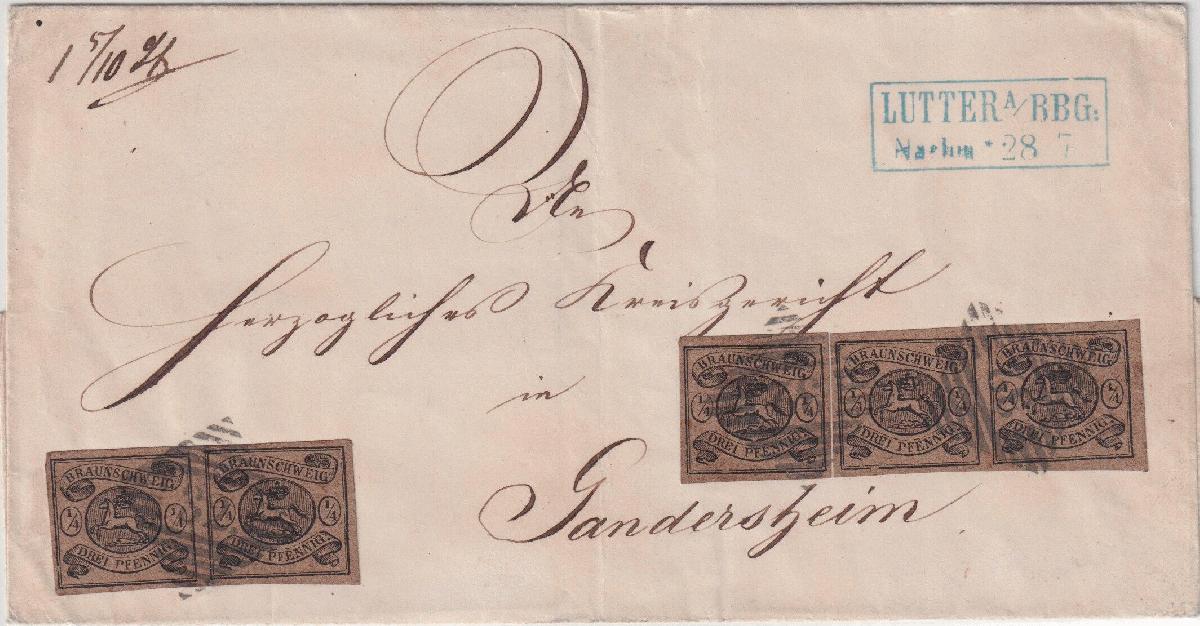 1 5/10
LUTTER A/BBG:
Nachm * 28 7
An
Herzogliches Kreisgericht
in
Gandersheim
BRAUNSCHWEIG
1/4 1/4
DREI PFENNIG
BRAUNSCHWEIG
1/4 1/4
DREI PFENNIG
BRAUNSCHWEIG
1/4 1/4
DREI PFENNIG
BRAUNSCHWEIG
1/4 1/4
DREI PFENNIG
BRAUNSCHWEIG
1/4 1/4
DREI PFENNIG